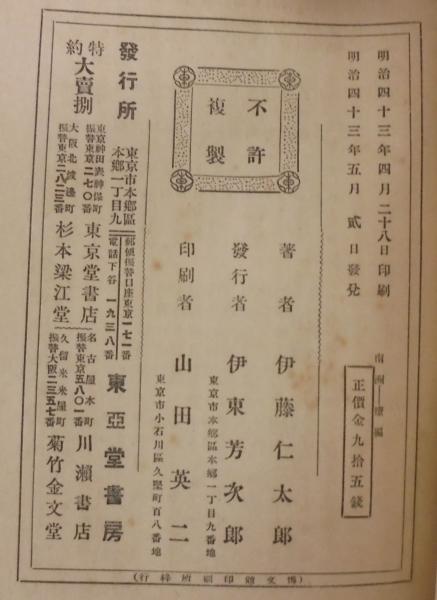 明治四十三年四月二十八日印刷
明治四十三年五月貳日發兌
南洲
正價金九拾五錢
不許
複製
著者 伊藤仁太郎
東京市本鄕區本鄕一丁目九番地
發行者 伊東芳次郎
東京市小石川區久堅町百八番地
印刷者 山田英二
發行所
東京市本鄕區
本鄕一丁目九
郵便振替口座東京一七一番
電話下谷一九三八番
東亞堂書房
特約
大賣捌
東京神田表神保町
振替東京二七〇番
東京堂書店
名古屋本町
振替東京五八〇一番
川瀨書店
大阪北渡邊町
振替東京二八二三番
杉本梁江堂
久留米米屋町
振替大阪二三五七番
菊竹金文堂
(博文館印刷所綷行)